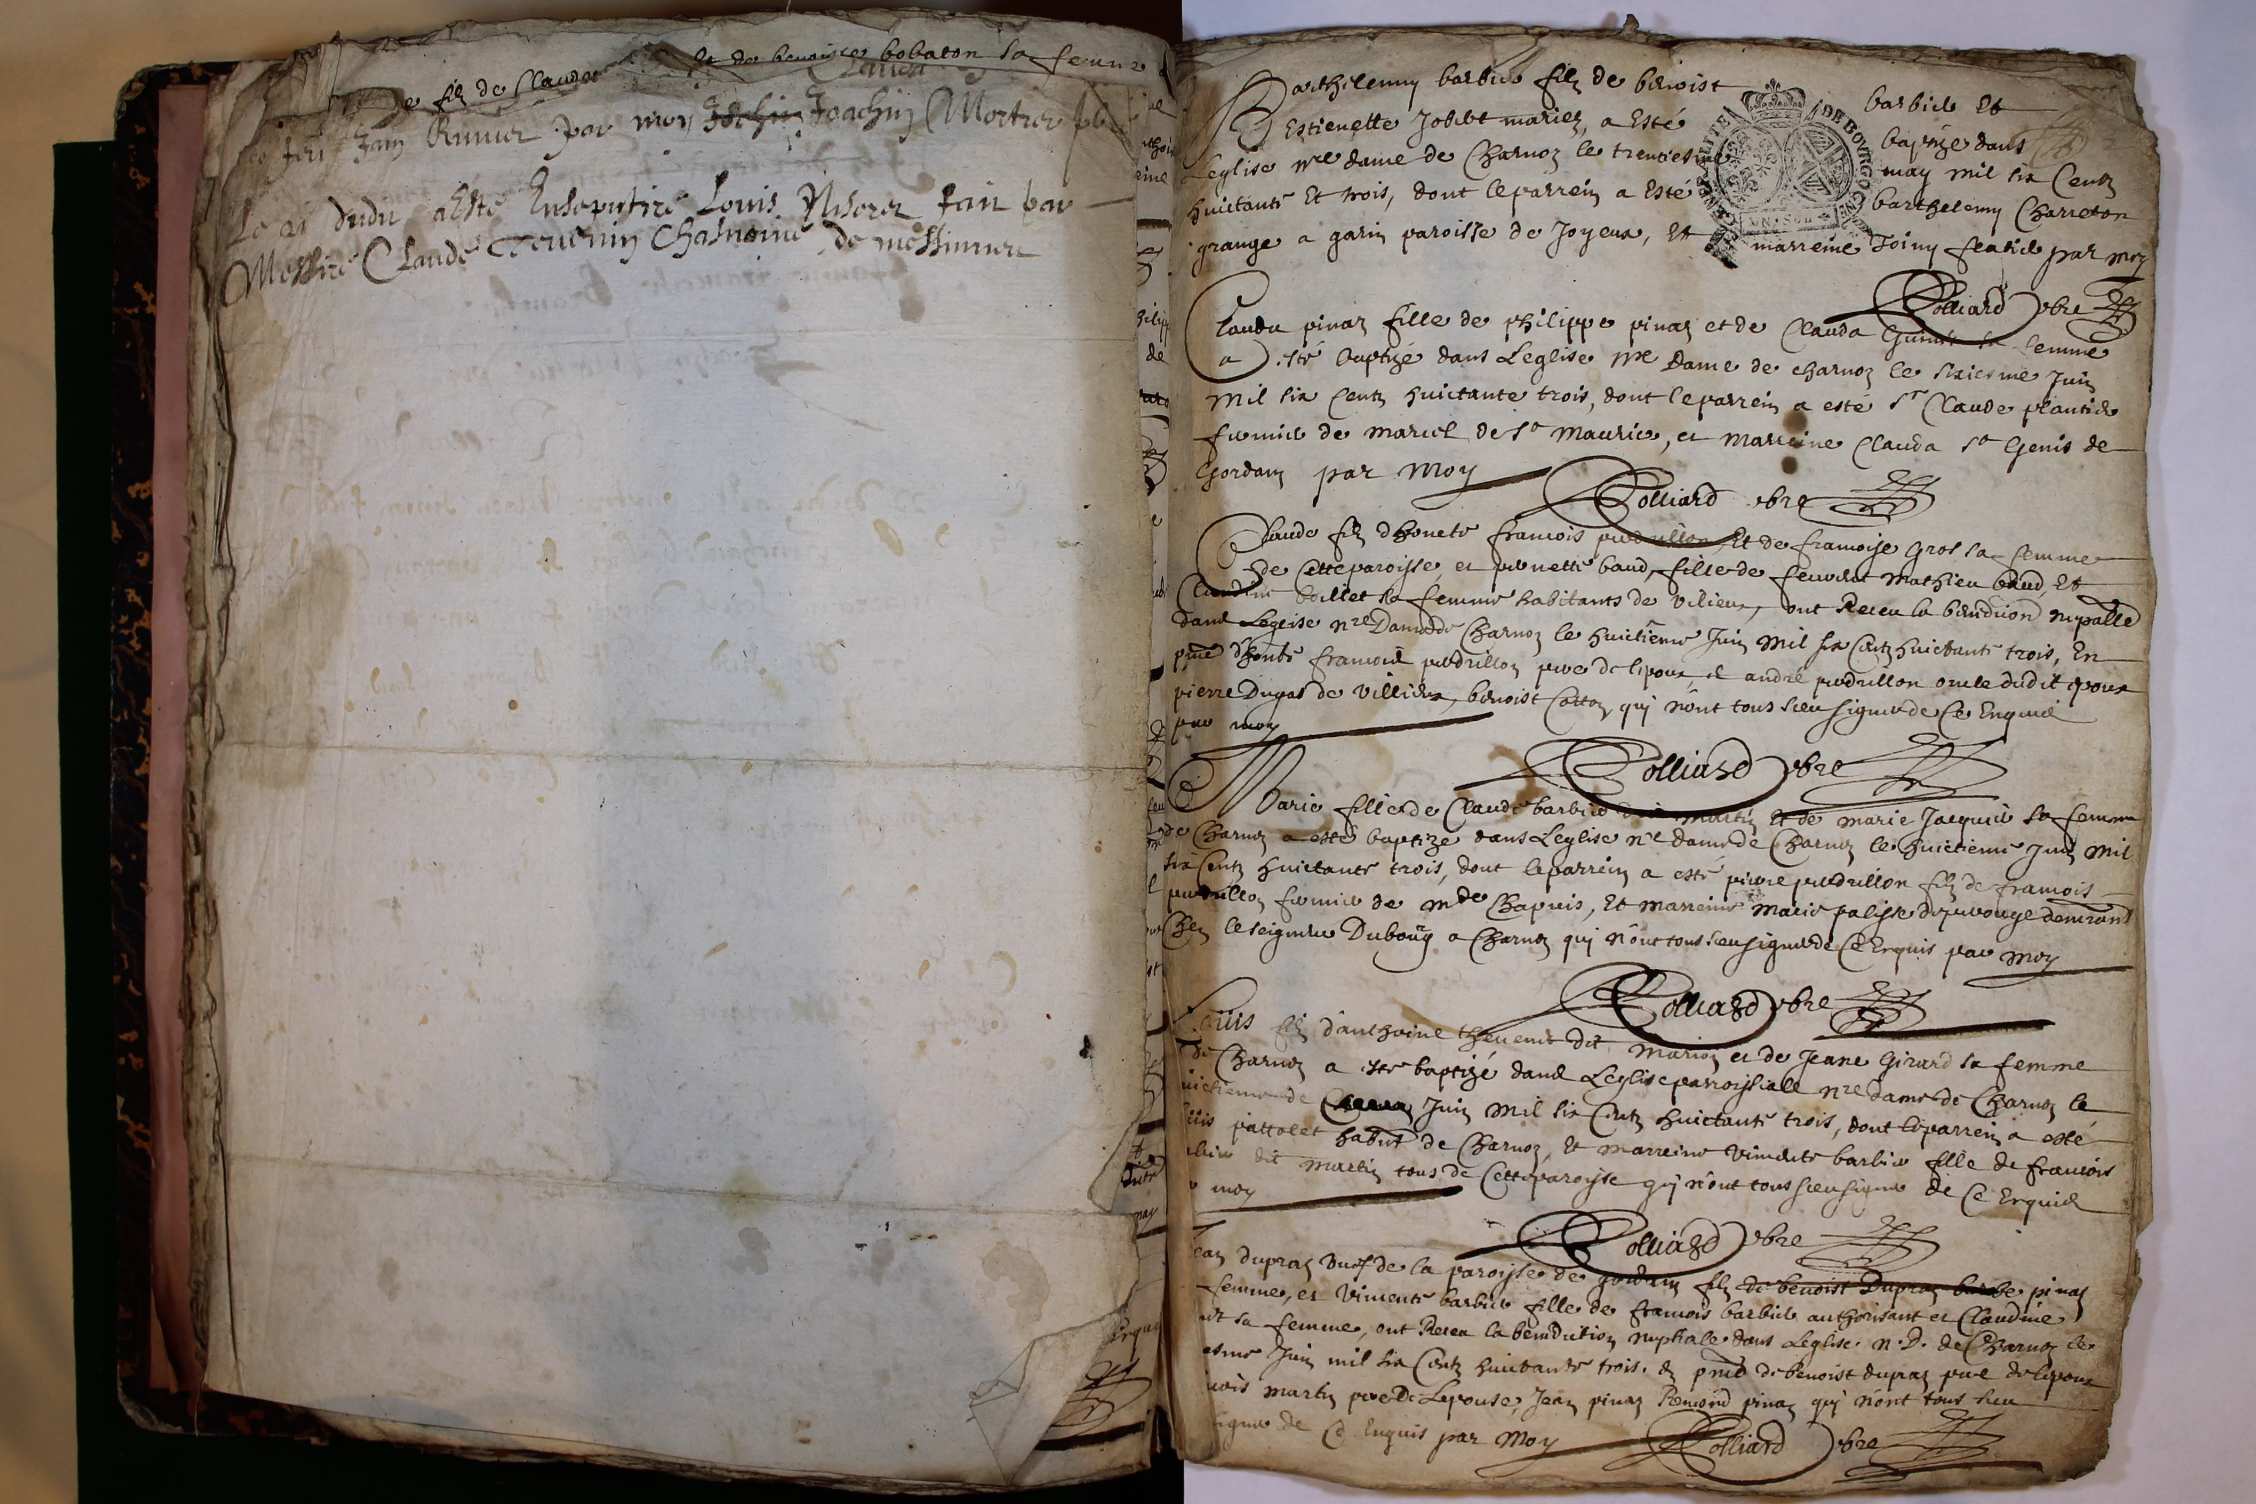 filz de Claude et de benoiste bobaton sa femme
par moy Joachin Mortier
Le 21 dudit a Esté Ensepulture Louis fait par
Messire Claude Tevenin Chasnoine de messimieu
Barthelemy barbier filz de benoist barbier Et
Estienette Jobbt mariez, a Esté baptize dans
Leglise nre dame de Charnoz le trentiesme may mil six Centz
huictante Et trois, dont leparrein a Esté barthelemy Charreton
grange a garin paroisse de Joyeux, Et marreine par moy
Colliard pbre
Clauda pinaz fille de philippe pinaz et de Clauda Guinet sa femme
a esté baptizé dans Leglise nre Dame de charnoz le sixiesme Juin
mil six Centz huictante trois, dont leparrein a esté Sr Claude plantier
fermier de marcel de St maurice, et marreine Clauda St Genis de
Gordans par moy
Colliard pbre
Claude filz dhonete francois perdrillon, Et de francoise Gros sa femme
de Cette paroisse, et pernette baud, fille de feu mathieu baud, Et
Claudine boillet sa femme habitants de vilieux, ont Receu la benediction nuptalle
dans Leglise nre Dame de Charnoz le huictieme Juin mil six Centz huictante trois, En
pnce dhonete francois perdrillon pere de lepoux, et andré perdrillon oncle dudit epoux
pierre Dugas de villieux, benoist Cotton, qui n'ont tous sceu signer de Ce Enquis
par moy
Colliard pbre
Marie fille de Claude barbier dit martin Et de marie Jacquier sa femme
de Charnoz a esté baptize dans Leglise nre dame de Charnoz le huictieme Juin mil
six Centz huictante trois, dont leparrein a esté pierre perdrillon filz de francois
perdrillon fermier de mde Chapuis, Et marreine marie palisse de perouge demeurant
Chez le seigneur Dubourg a Charnoz qui n'ont tous sceu signer de Ce Enquis par moy
Colliard pbre
Louis filz danthoine thevenet dit marion et de Jeane Girard sa femme
de Charnoz a este baptizé dans Leglise parroissialle nre dame de Charnoz le
huictieme de Juin mil six Centz huictante trois, dont leparrein a esté
Louis pattolet habit de Charnoz, Et marreine vincente barbier fille de francois
barbier dit martin tous de Cette paroisse qui n'ont tous sceu signer de Ce Enquis
par moy
Colliard pbre
Jean dupraz veuf de la paroisse de gordans filz de benoist Dupraz barbe pinaz
femme, et vincente barbier fille de francois barbier authorisant et Claudine
sa femme, ont Receu la benediction nuptiale dans Leglise N. D. de Charnoz le
Juin mil six Centz huictante trois. En pnce de benoist dupraz pere de lepoux
francois martin pere De Lepouse, Jean pinaz Remond pinaz qui n'ont tous sceu
signer de Ce Enquis par moy
Colliard pbre